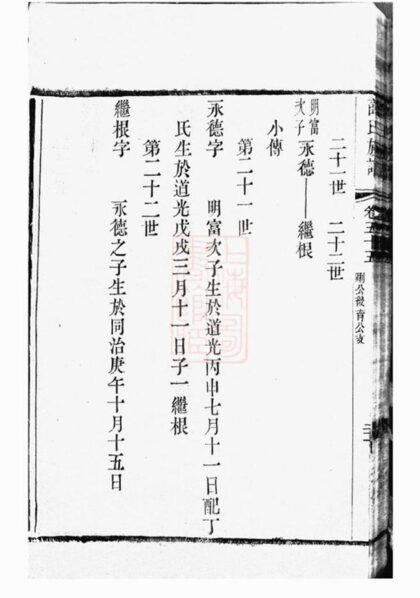 卷五十五
二十一世　二十二世
明富次子　永德——繼根
小傳
第二十一世
永德字　明富次子生於道光丙申七月十一日配丁
氏生於道光戊戌三月十一日子一繼根
第二十二世
繼根字　永德之子生於同治庚午十月十五日